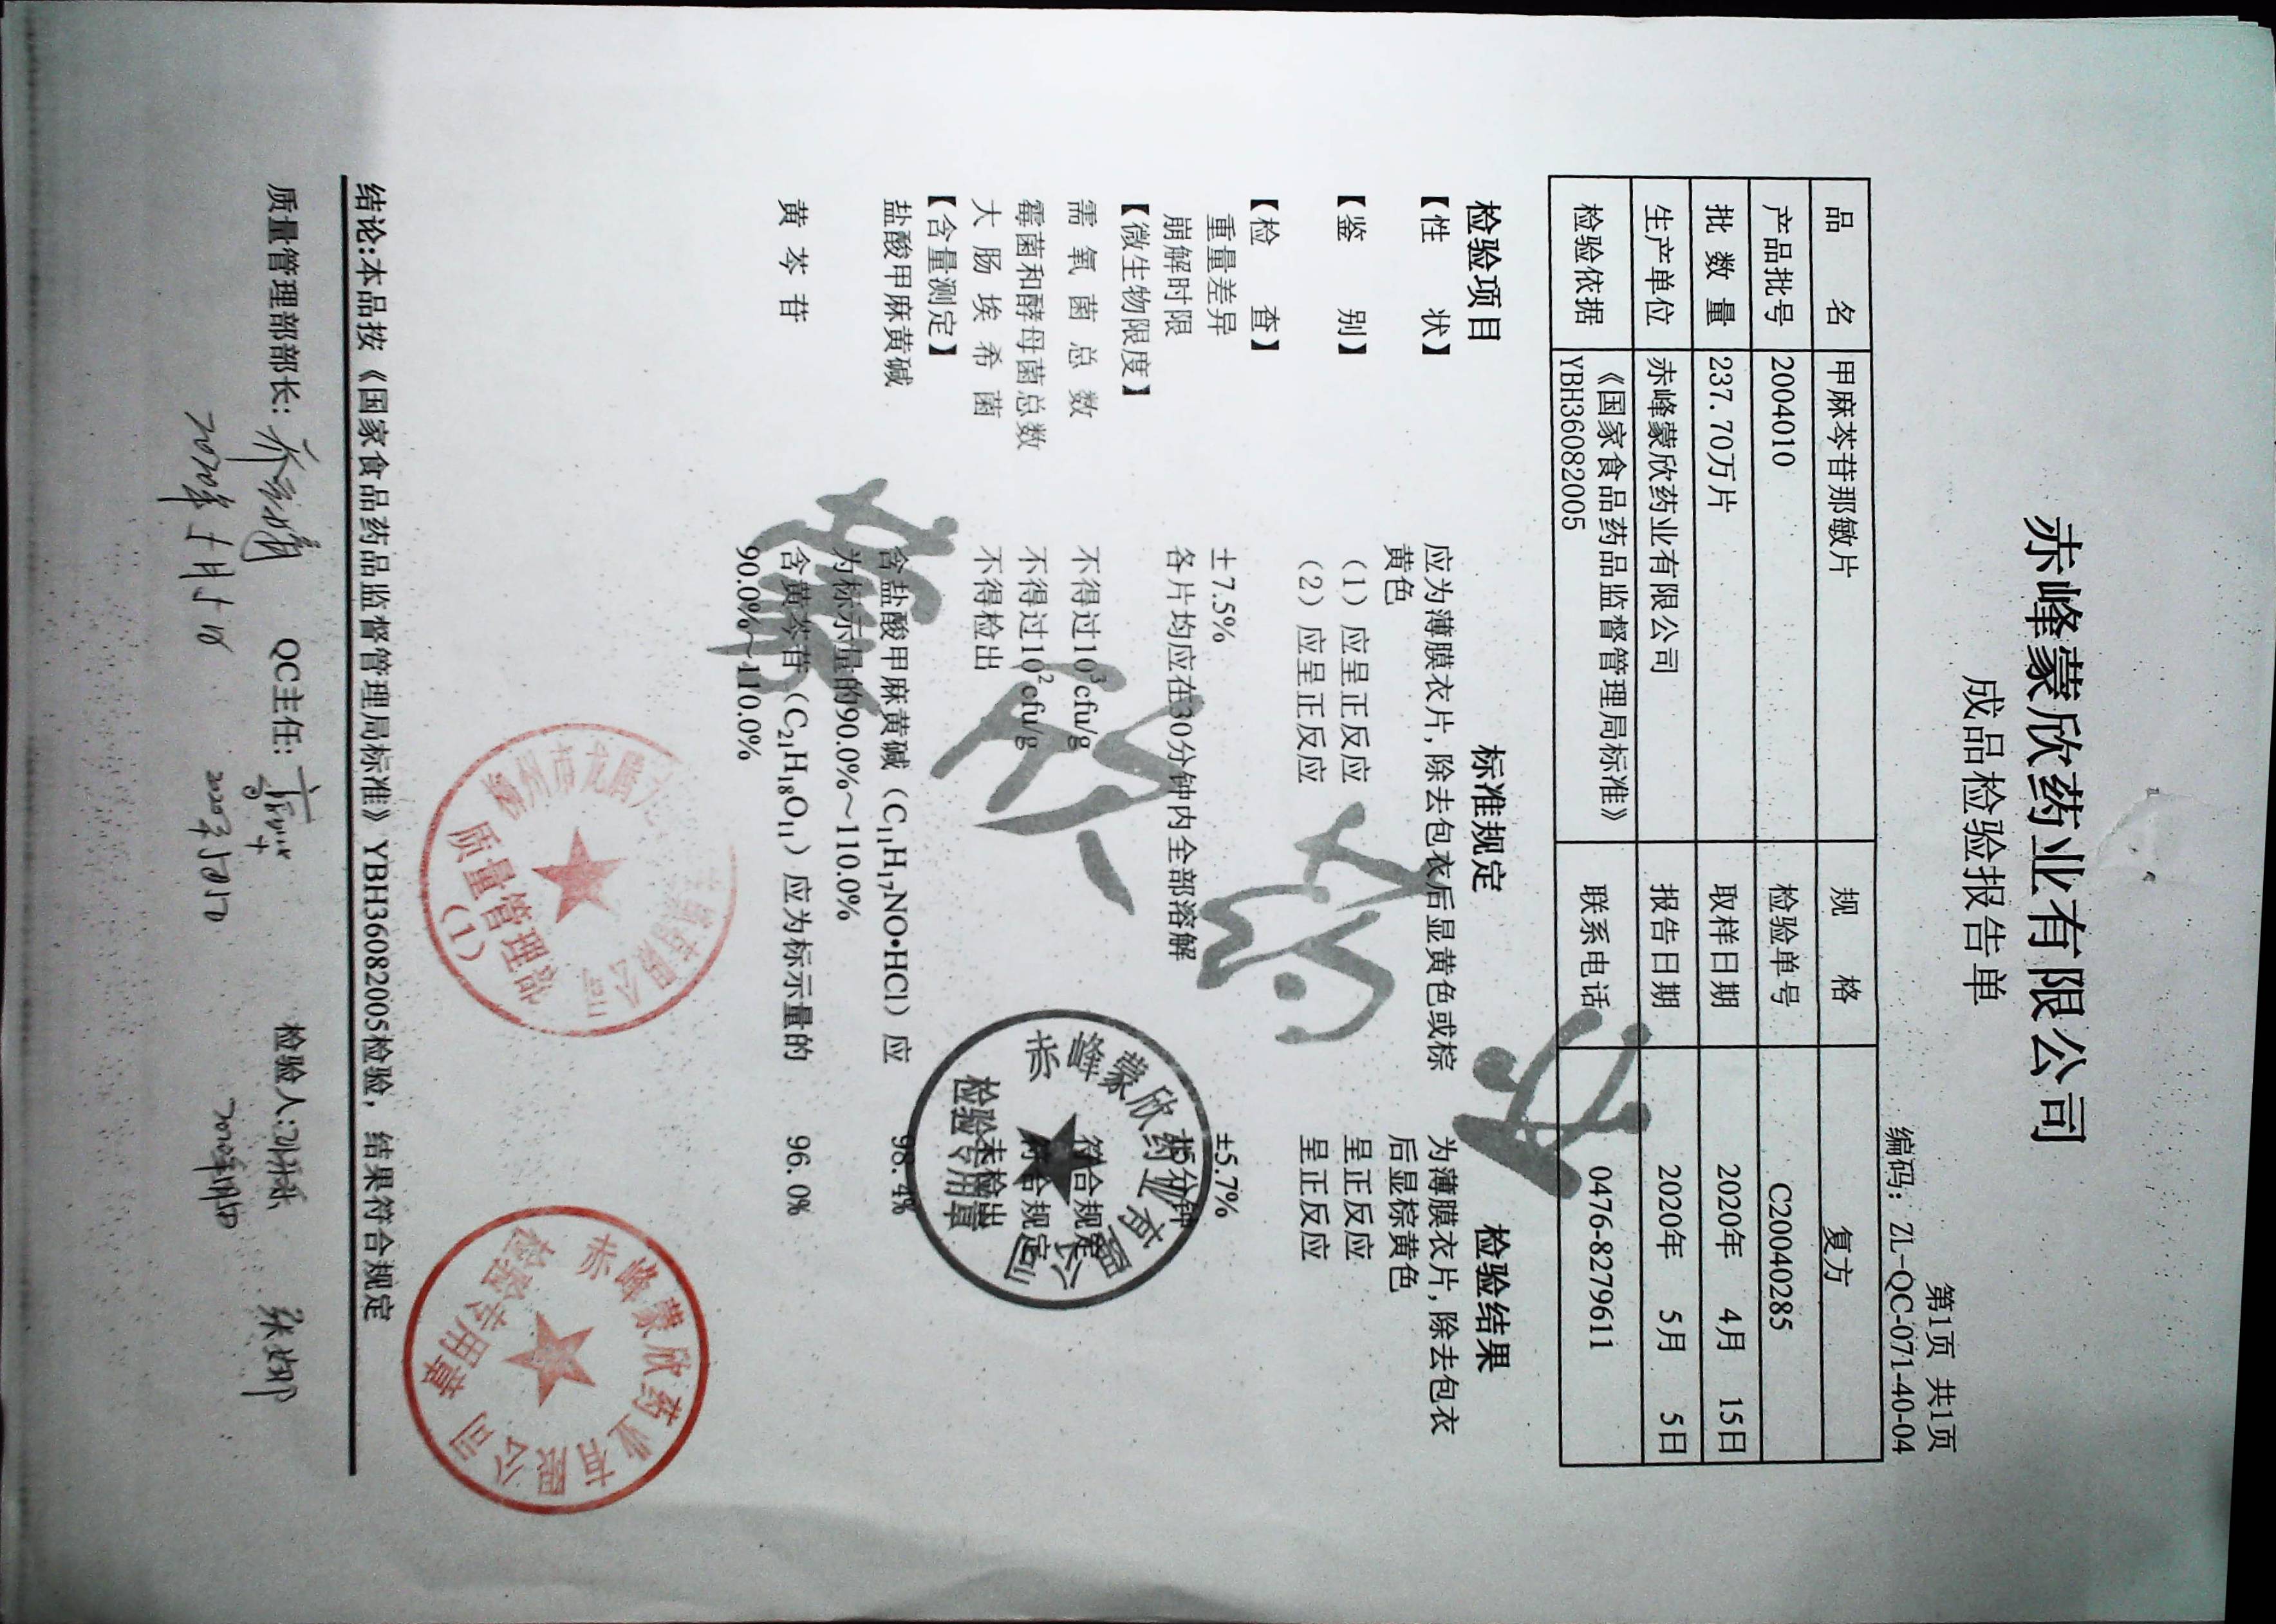 赤峰蒙欣药业有限公司
成品检验报告单
第1页 共1页
编码：ZL-QC-071-40-04
品 名 甲麻芩苷那敏片 规 格 复方
产品批号 2004010 检验单号 C200040285
批 数 量 237.70万片 取样日期 2020年 4月 15日
生产单位 赤峰蒙欣药业有限公司 报告日期 2020年 5月 5日
检验依据 《国家食品药品监督管理局标准》 联系电话 0476-8279611
YBH36082005
检验项目 标准规定 检验结果
【性 状】 应为薄膜衣片，除去包衣后显黄色或棕 为薄膜衣片，除去包衣
黄色 后显棕黄色
【鉴 别】 （1）应呈正反应 呈正反应
（2）应呈正反应 呈正反应
【检 查】
重量差异 ±7.5% ±5.7%
崩解时限 各片均应在30分钟内全部溶解 15分钟
【微生物限度】
需 氧 菌 总 数 不得过10³cfu/g 符合规定
霉菌和酵母菌总数 不得过10²cfu/g 符合规定
大 肠 埃 希 菌 不得检出 未检出
【含量测定】
盐酸甲麻黄碱 含盐酸甲麻黄碱（C₁₁H₁₇NO•HCl）应 98.4%
为标示量的90.0%～110.0%
黄 芩 苷 含黄芩苷（C₂₁H₁₈O₁₁）应为标示量的 96.0%
90.0%～110.0%
赤峰蒙欣药业有限公司
检验专用章
质量管理部
（1）
赤峰蒙欣药业有限公司
检验专用章
结论:本品按《国家食品药品监督管理局标准》YBH36082005检验，结果符合规定
质量管理部部长: QC主任: 检验人: 张娜